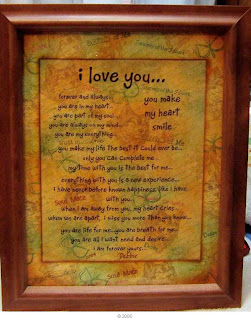 i love you...
forever and always...
you are in my heart...
you are part of my soul...
you are always on my mind...
you are my everything...
you make
my heart
smile
you make my life The best iT Could ever be...
only you Can Complete me...
my Time wiTh you is The best for me...
everyThing wiTh you is a new experience...
i have never before known happiness like i have
wiTh you...
when i am away from you, my heart cries...
when we are apart, i miss you more Than you know...
you are life for me...you are breaTh for me...
you are all i want need and desire...
i am forever yours...
Soul Mate
Soul Mate
© 2005